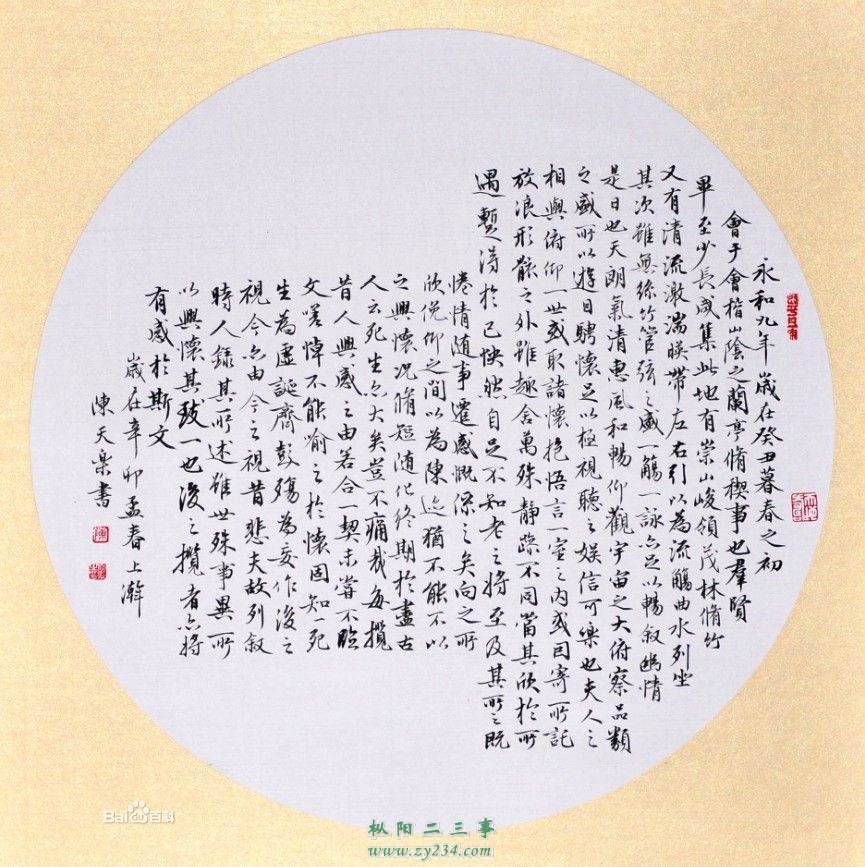 永和九年歲在癸丑暮春之初
會于會稽山陰之蘭亭脩禊事也羣賢
畢至少長咸集此地有崇山峻領茂林脩竹
又有清流激湍暎帶左右引以為流觴曲水列坐
其次雖無絲竹管弦之盛一觴一詠亦足以暢敘幽情
是日也天朗氣清惠風和暢仰觀宇宙之大俯察品類
之盛所以遊目騁懷足以極視聽之娛信可樂也夫人之
相與俯仰一世或取諸懷抱悟言一室之內或因寄所託
放浪形骸之外雖趣舍萬殊静躁不同當其欣於所
遇蹔得於己怏然自足不知老之將至及其所之既
惓情随事遷感慨係之矣向之所
欣俛仰之間以為陳迹猶不能不以
之興懷况脩短随化終期於盡古
人云死生亦大矣豈不痛哉每攬
昔人興感之由若合一契未嘗不臨
文嗟悼不能喻之於懷固知一死
生為虛誕齊彭殤為妄作後之
視今亦由今之視昔悲夫故列敘
時人錄其所述雖世殊事異所
以興懷其致一也後之攬者亦將
有感於斯文
歲在辛卯孟春上澣
陳天樂書
Bai百科
枞阳二三事
www.zy234.com